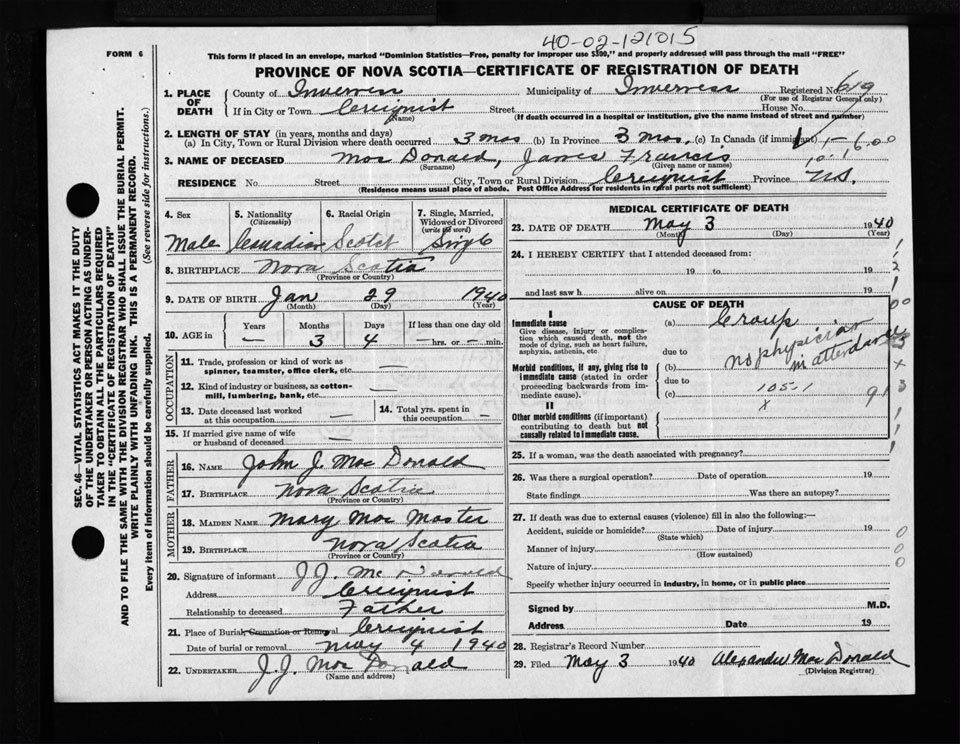 40-02-121015
FORM 6
This form if placed in an envelope, marked "Dominion Statistics—Free, penalty for improper use $300," and properly addressed will pass through the mail "FREE"
PROVINCE OF NOVA SCOTIA—CERTIFICATE OF REGISTRATION OF DEATH
1. PLACE OF DEATH County of Inverness Municipality of Inverness Registered No. 619
(For use of Registrar General only)
If in City or Town Creignish Street House No.
(Name) (If death occurred in a hospital or institution, give the name instead of street and number)
2. LENGTH OF STAY (in years, months and days)
(a) In City, Town or Rural Division where death occurred 3 mos (b) In Province 3 mos. (c) In Canada (if immigrant)
3. NAME OF DECEASED Mac Donald, James Francis
(Surname) (Given name or names)
RESIDENCE No. Street City, Town or Rural Division Creignish Province N.S.
(Residence means usual place of abode. Post Office Address for residents in rural parts not sufficient)
4. Sex 5. Nationality (Citizenship) 6. Racial Origin 7. Single, Married, Widowed or Divorced (write the word)
Male Canadian Scotch Single
8. BIRTHPLACE Nova Scotia
(Province or Country)
9. DATE OF BIRTH Jan 29 1940
(Month) (Day) (Year)
10. AGE in Years Months Days If less than one day old
— 3 4 — hrs. or — min.
OCCUPATION
11. Trade, profession or kind of work as spinner, teamster, office clerk, etc. —
12. Kind of industry or business, as cotton-mill, lumbering, bank, etc. —
13. Date deceased last worked at this occupation — 14. Total yrs. spent in this occupation —
15. If married give name of wife or husband of deceased —
FATHER
16. NAME John J. Mac Donald
17. BIRTHPLACE Nova Scotia
(Province or Country)
MOTHER
18. MAIDEN NAME Mary Mac Master
19. BIRTHPLACE Nova Scotia
(Province or Country)
20. Signature of informant J.J. Mc Donald
Address Creignish
Relationship to deceased Father
21. Place of Burial, Cremation or Removal Creignish
Date of burial or removal May 4 1940
22. UNDERTAKER J.J. Mac Donald
(Name and address)
MEDICAL CERTIFICATE OF DEATH
23. DATE OF DEATH May 3 1940
(Month) (Day) (Year)
24. I HEREBY CERTIFY that I attended deceased from:
19 to 19
and last saw h alive on 19
CAUSE OF DEATH
I
Immediate cause
Give disease, injury or complication which caused death, not the mode of dying, such as heart failure, asphyxia, asthenia, etc
(a) Croup
due to
(b) no physician in attendance
Morbid conditions, if any, giving rise to immediate cause (stated in order proceeding backwards from immediate cause)
due to
(c) 105-1
x
II
Other morbid conditions (if important) contributing to death but not causally related to immediate cause.
25. If a woman, was the death associated with pregnancy?
26. Was there a surgical operation? Date of operation 19
State findings Was there an autopsy?
27. If death was due to external causes (violence) fill in also the following:—
Accident, suicide or homicide? Date of injury 19
(State which)
Manner of injury
(How sustained)
Nature of injury
Specify whether injury occurred in industry, in home, or in public place
Signed by M.D.
Address Date 19
28. Registrar's Record Number
29. Filed May 3 1940 Alexander Mac Donald
(Division Registrar)
SEC. 46—VITAL STATISTICS ACT MAKES IT THE DUTY
OF THE UNDERTAKER OR PERSON ACTING AS UNDER-
TAKER TO OBTAIN ALL THE PARTICULARS REQUIRED
IN THE "CERTIFICATE OF REGISTRATION OF DEATH"
AND TO FILE THE SAME WITH THE DIVISION REGISTRAR WHO SHALL ISSUE THE BURIAL PERMIT.
WRITE PLAINLY WITH UNFADING INK. THIS IS A PERMANENT RECORD.
Every item of information should be carefully supplied. (See reverse side for instructions.)